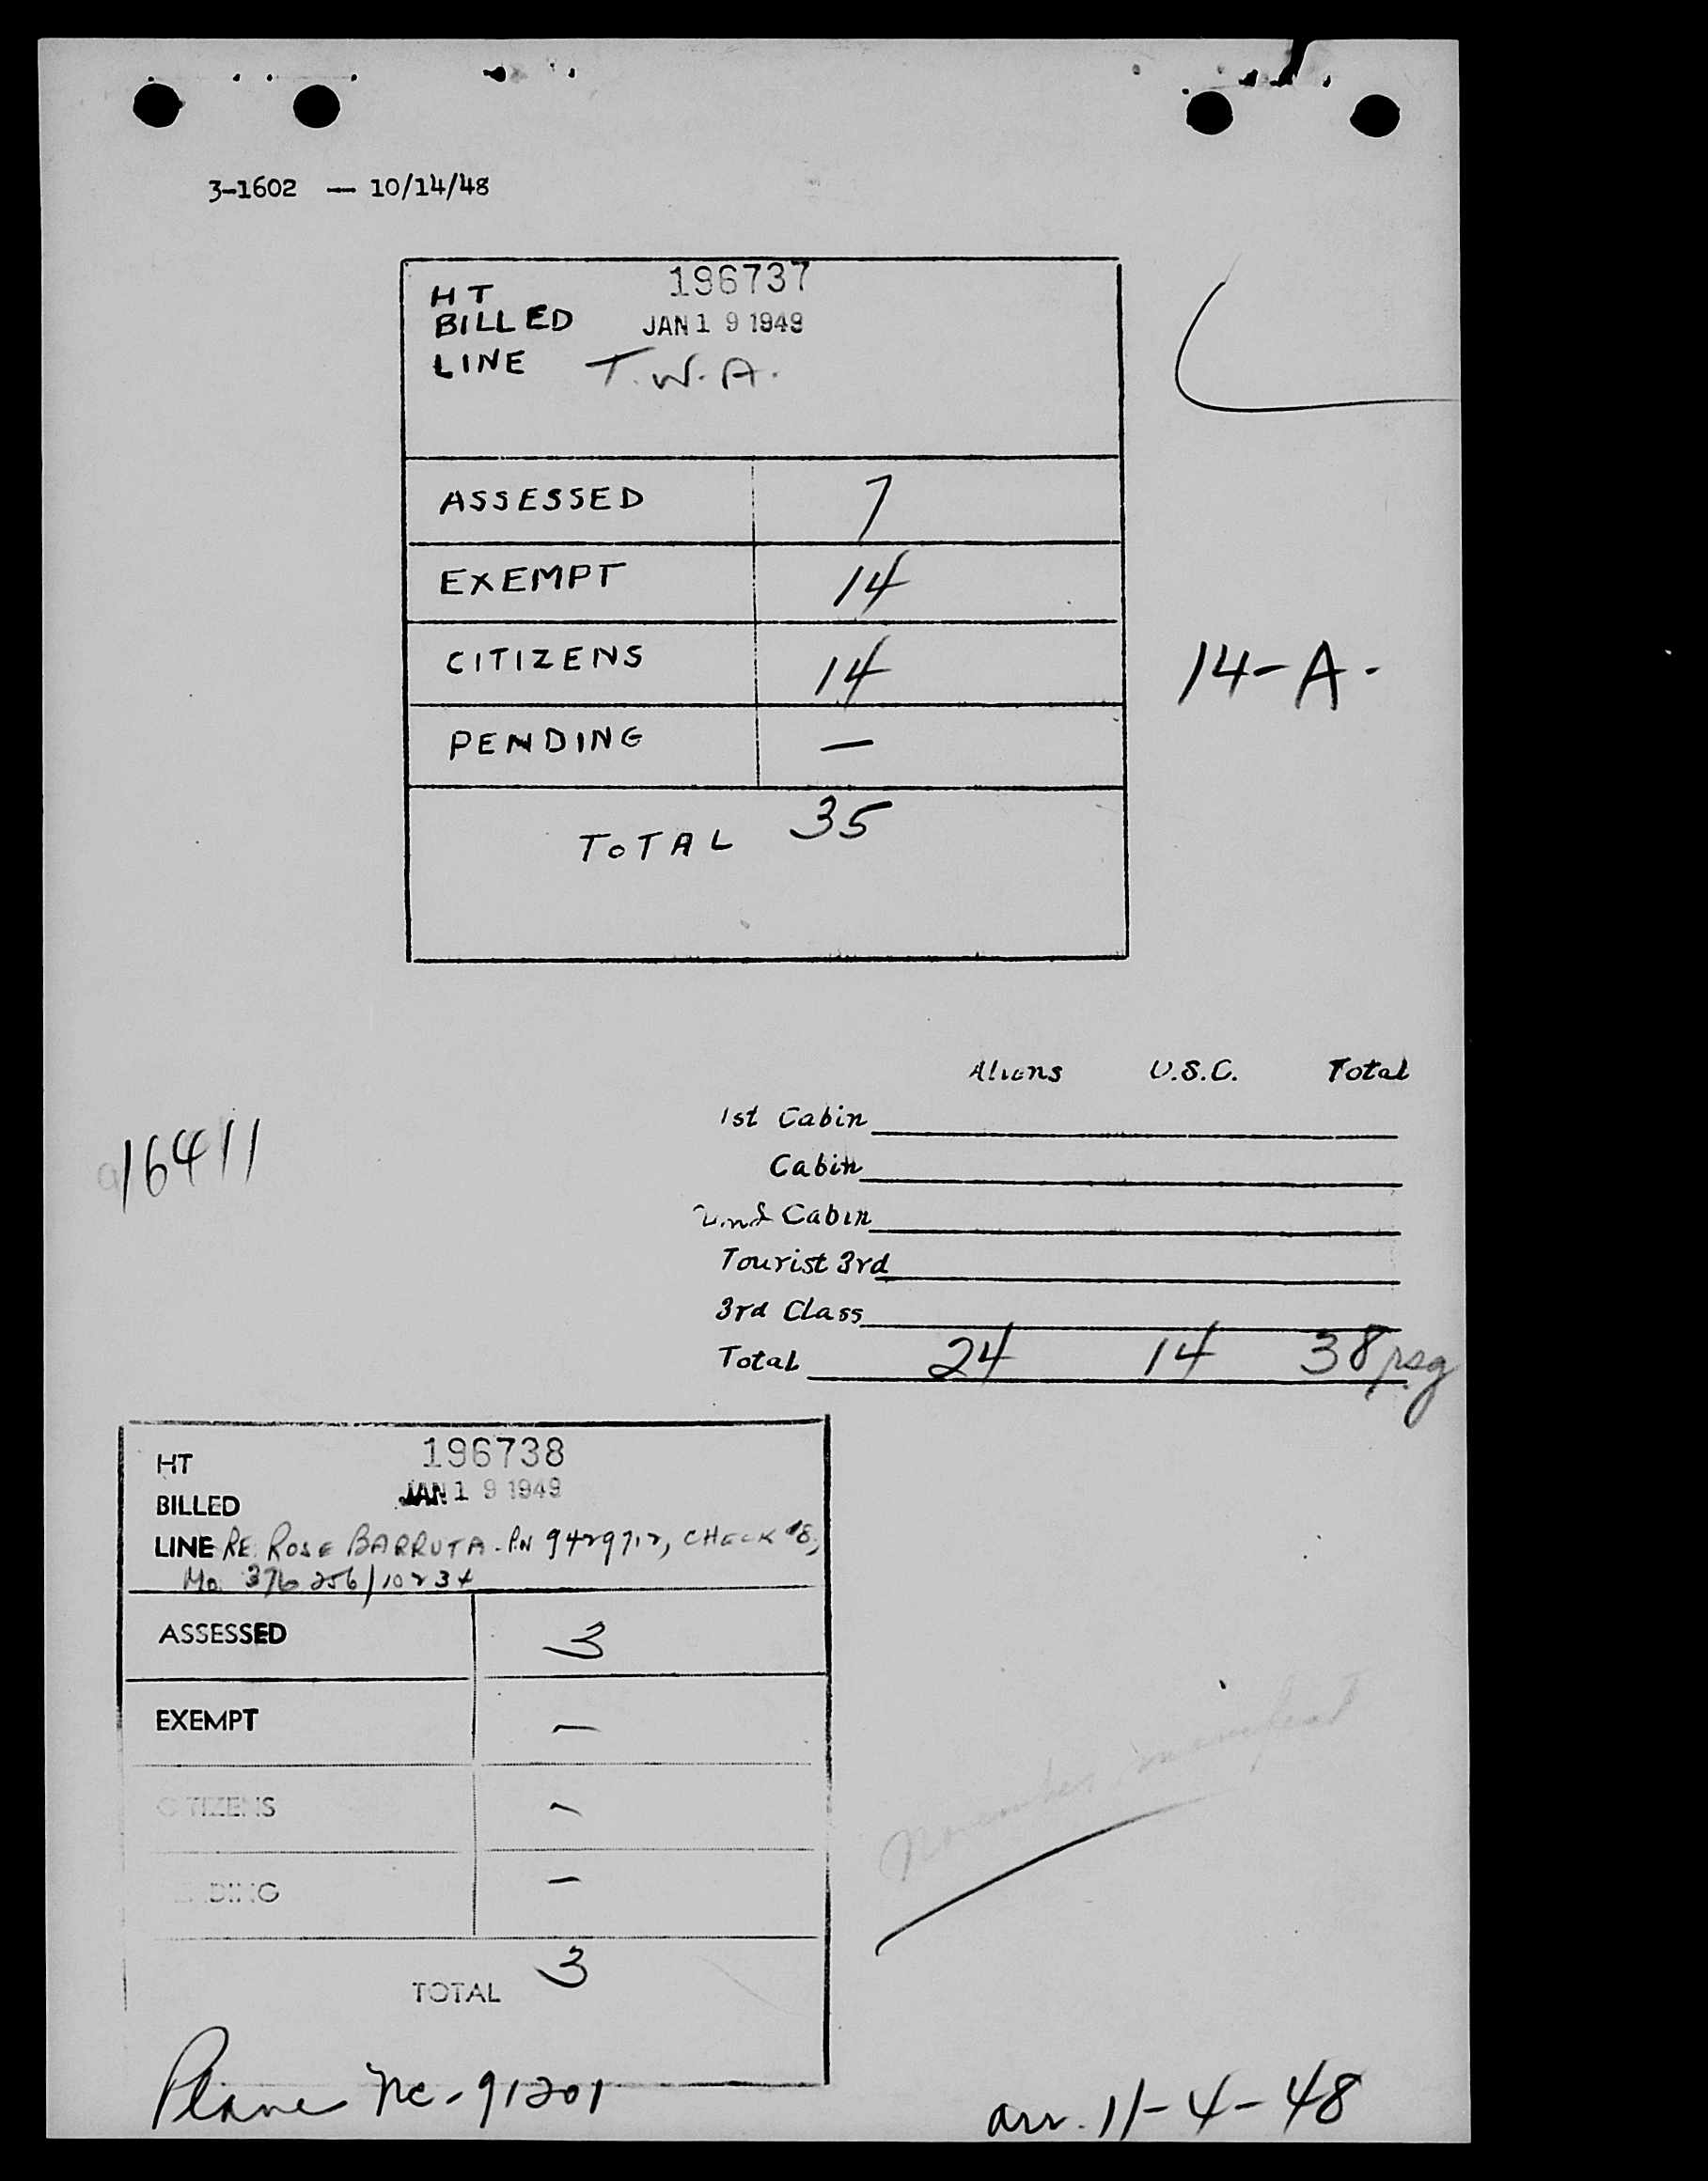 3-1602 — 10/14/48
HT 196737
BILLED JAN 19 1949
LINE T.W.A.
ASSESSED 7
EXEMPT 14
CITIZENS 14
14-A-
PENDING —
TOTAL 35
Aliens U.S.C. Total
1st Cabin
16411
Cabin
2nd Cabin
Tourist 3rd
3rd Class
Total 24 14 38 psg
HT 196738
BILLED JAN 19 1949
LINE RE. ROSE BARRUTA - PN CHECK
ASSESSED 3
EXEMPT —
CITIZENS —
November manifest
PENDING —
TOTAL 3
Plane NC-91201
arr. 11-4-48